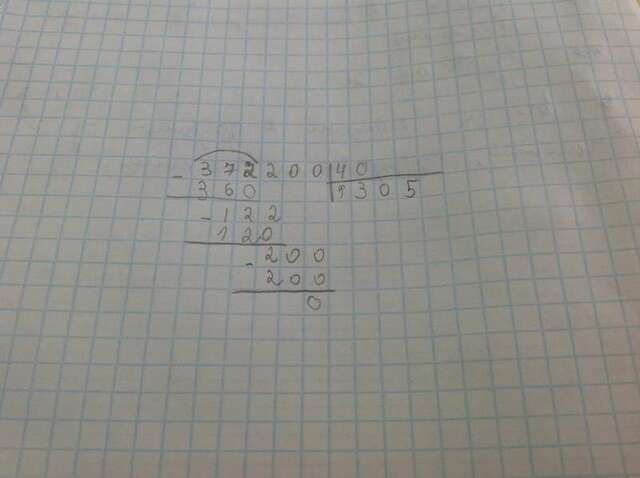 - 372200 | 40
360 | 9305
- 122
120
- 200
200
0